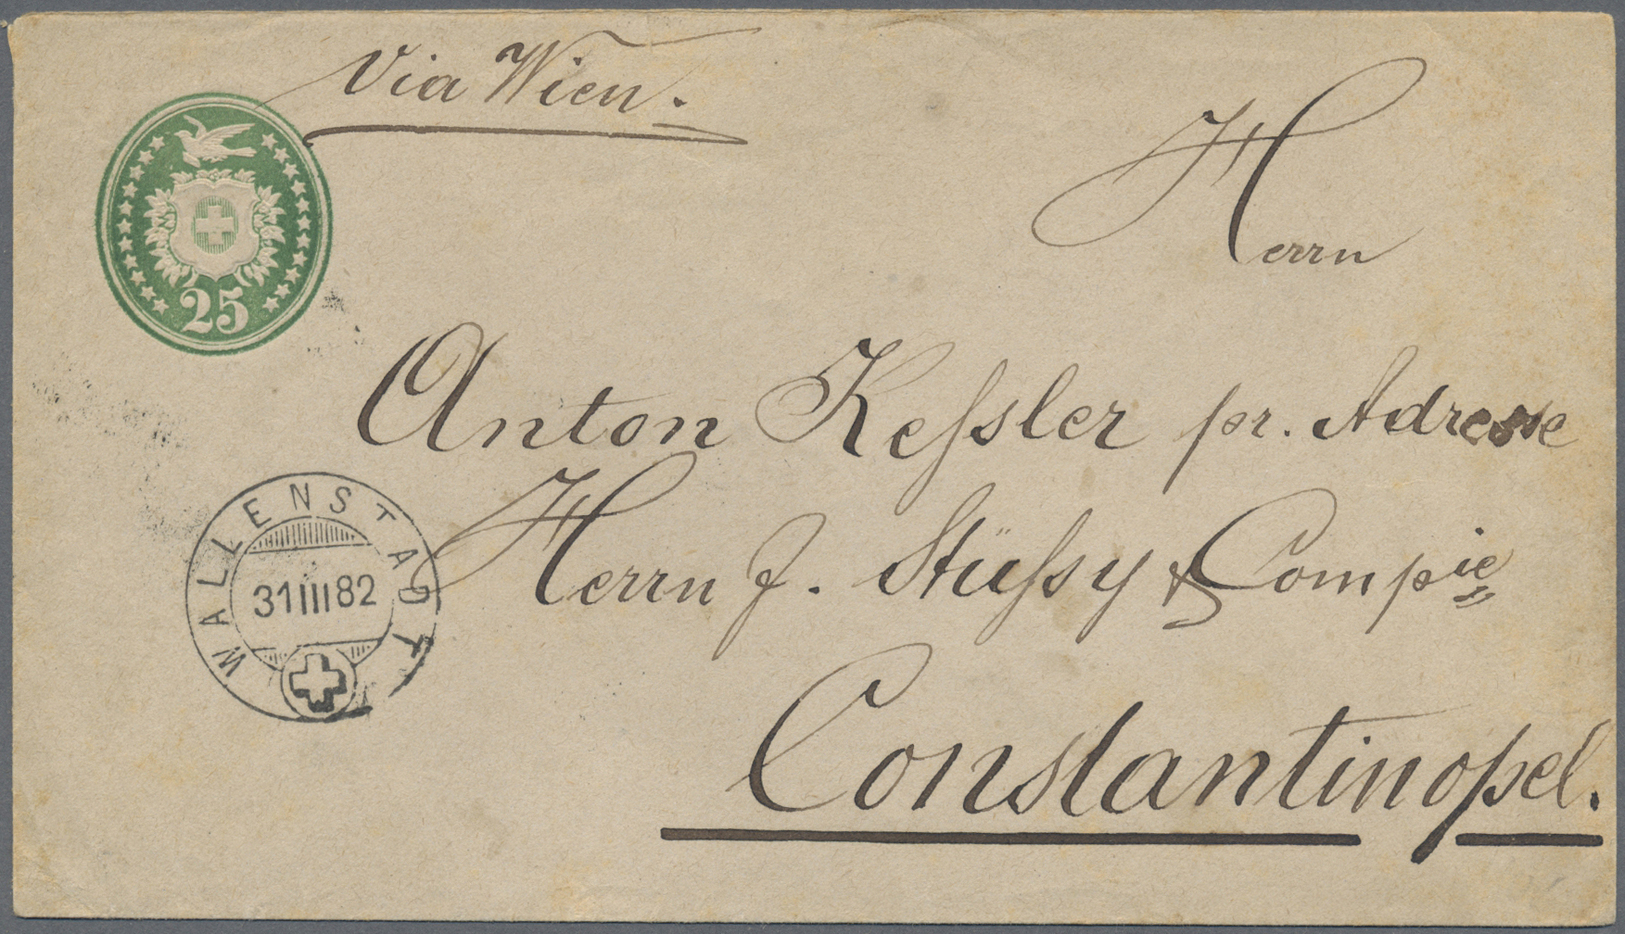 Via Wien.
25
Herrn
Anton Keſsler pr. Adresse
Herrn J. Stüſsy & Compie
WALLENSTADT
31 III 82
Constantinopel.